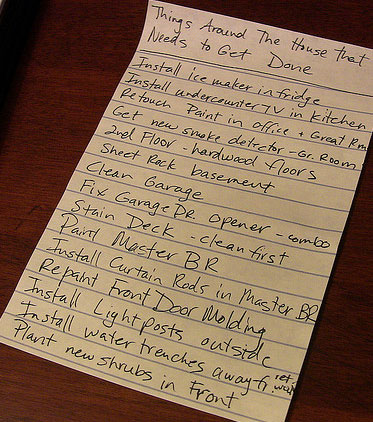 Things Around The House that
Needs to Get Done
Install ice maker in fridge
Install undercounter TV in kitchen
Retouch Paint in office + Great Rm
Get new smoke detector - Gr. Room
2nd Floor - hardwood floors
Sheet Rock basement
Clean Garage
Fix Garage DR opener - combo
Stain Deck - clean first
Paint Master BR
Install Curtain Rods in Master BR
Repaint Front Door Molding
Install Light posts outside
Install water trenches away fr. ret. wall
Plant new shrubs in Front